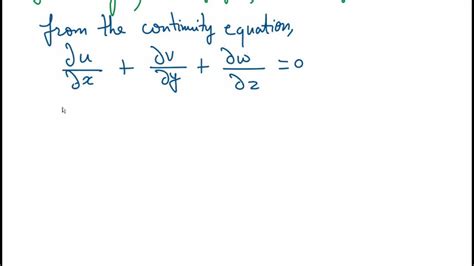 from the continuity equation,
∂u/∂x + ∂v/∂y + ∂w/∂z = 0